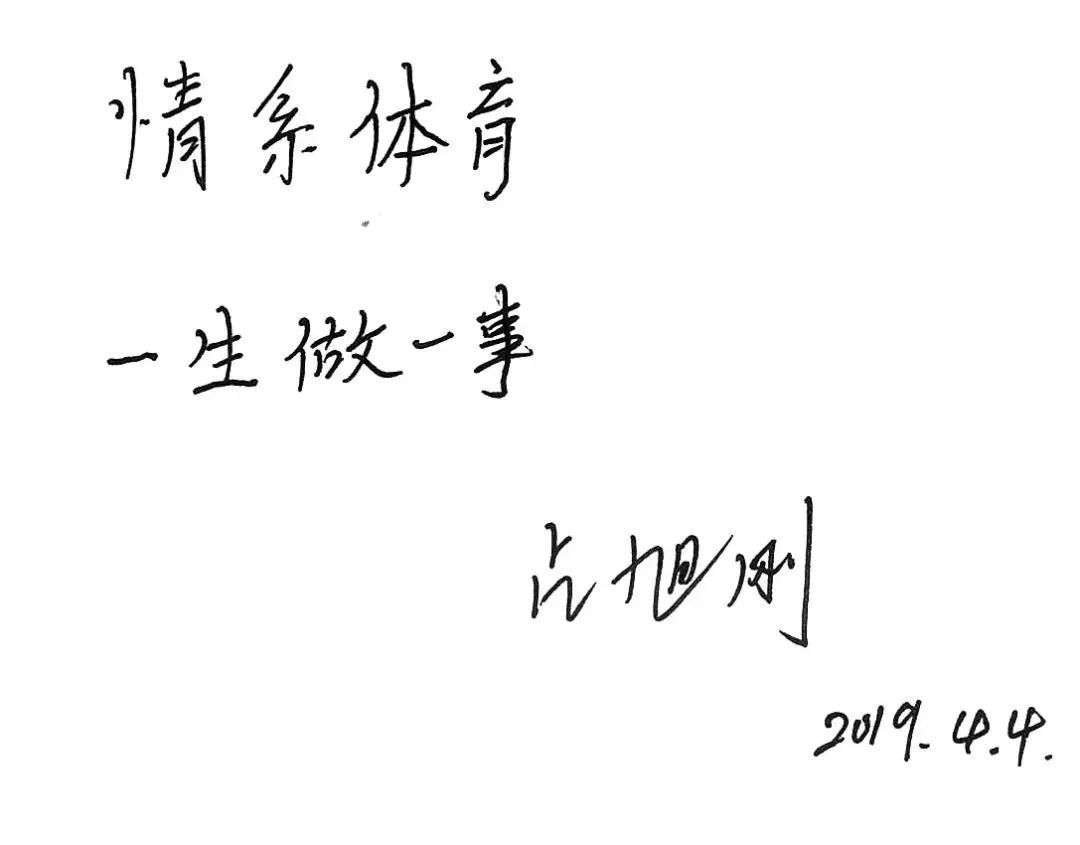 情系体育
一生做一事
占旭刚
2019.4.4.